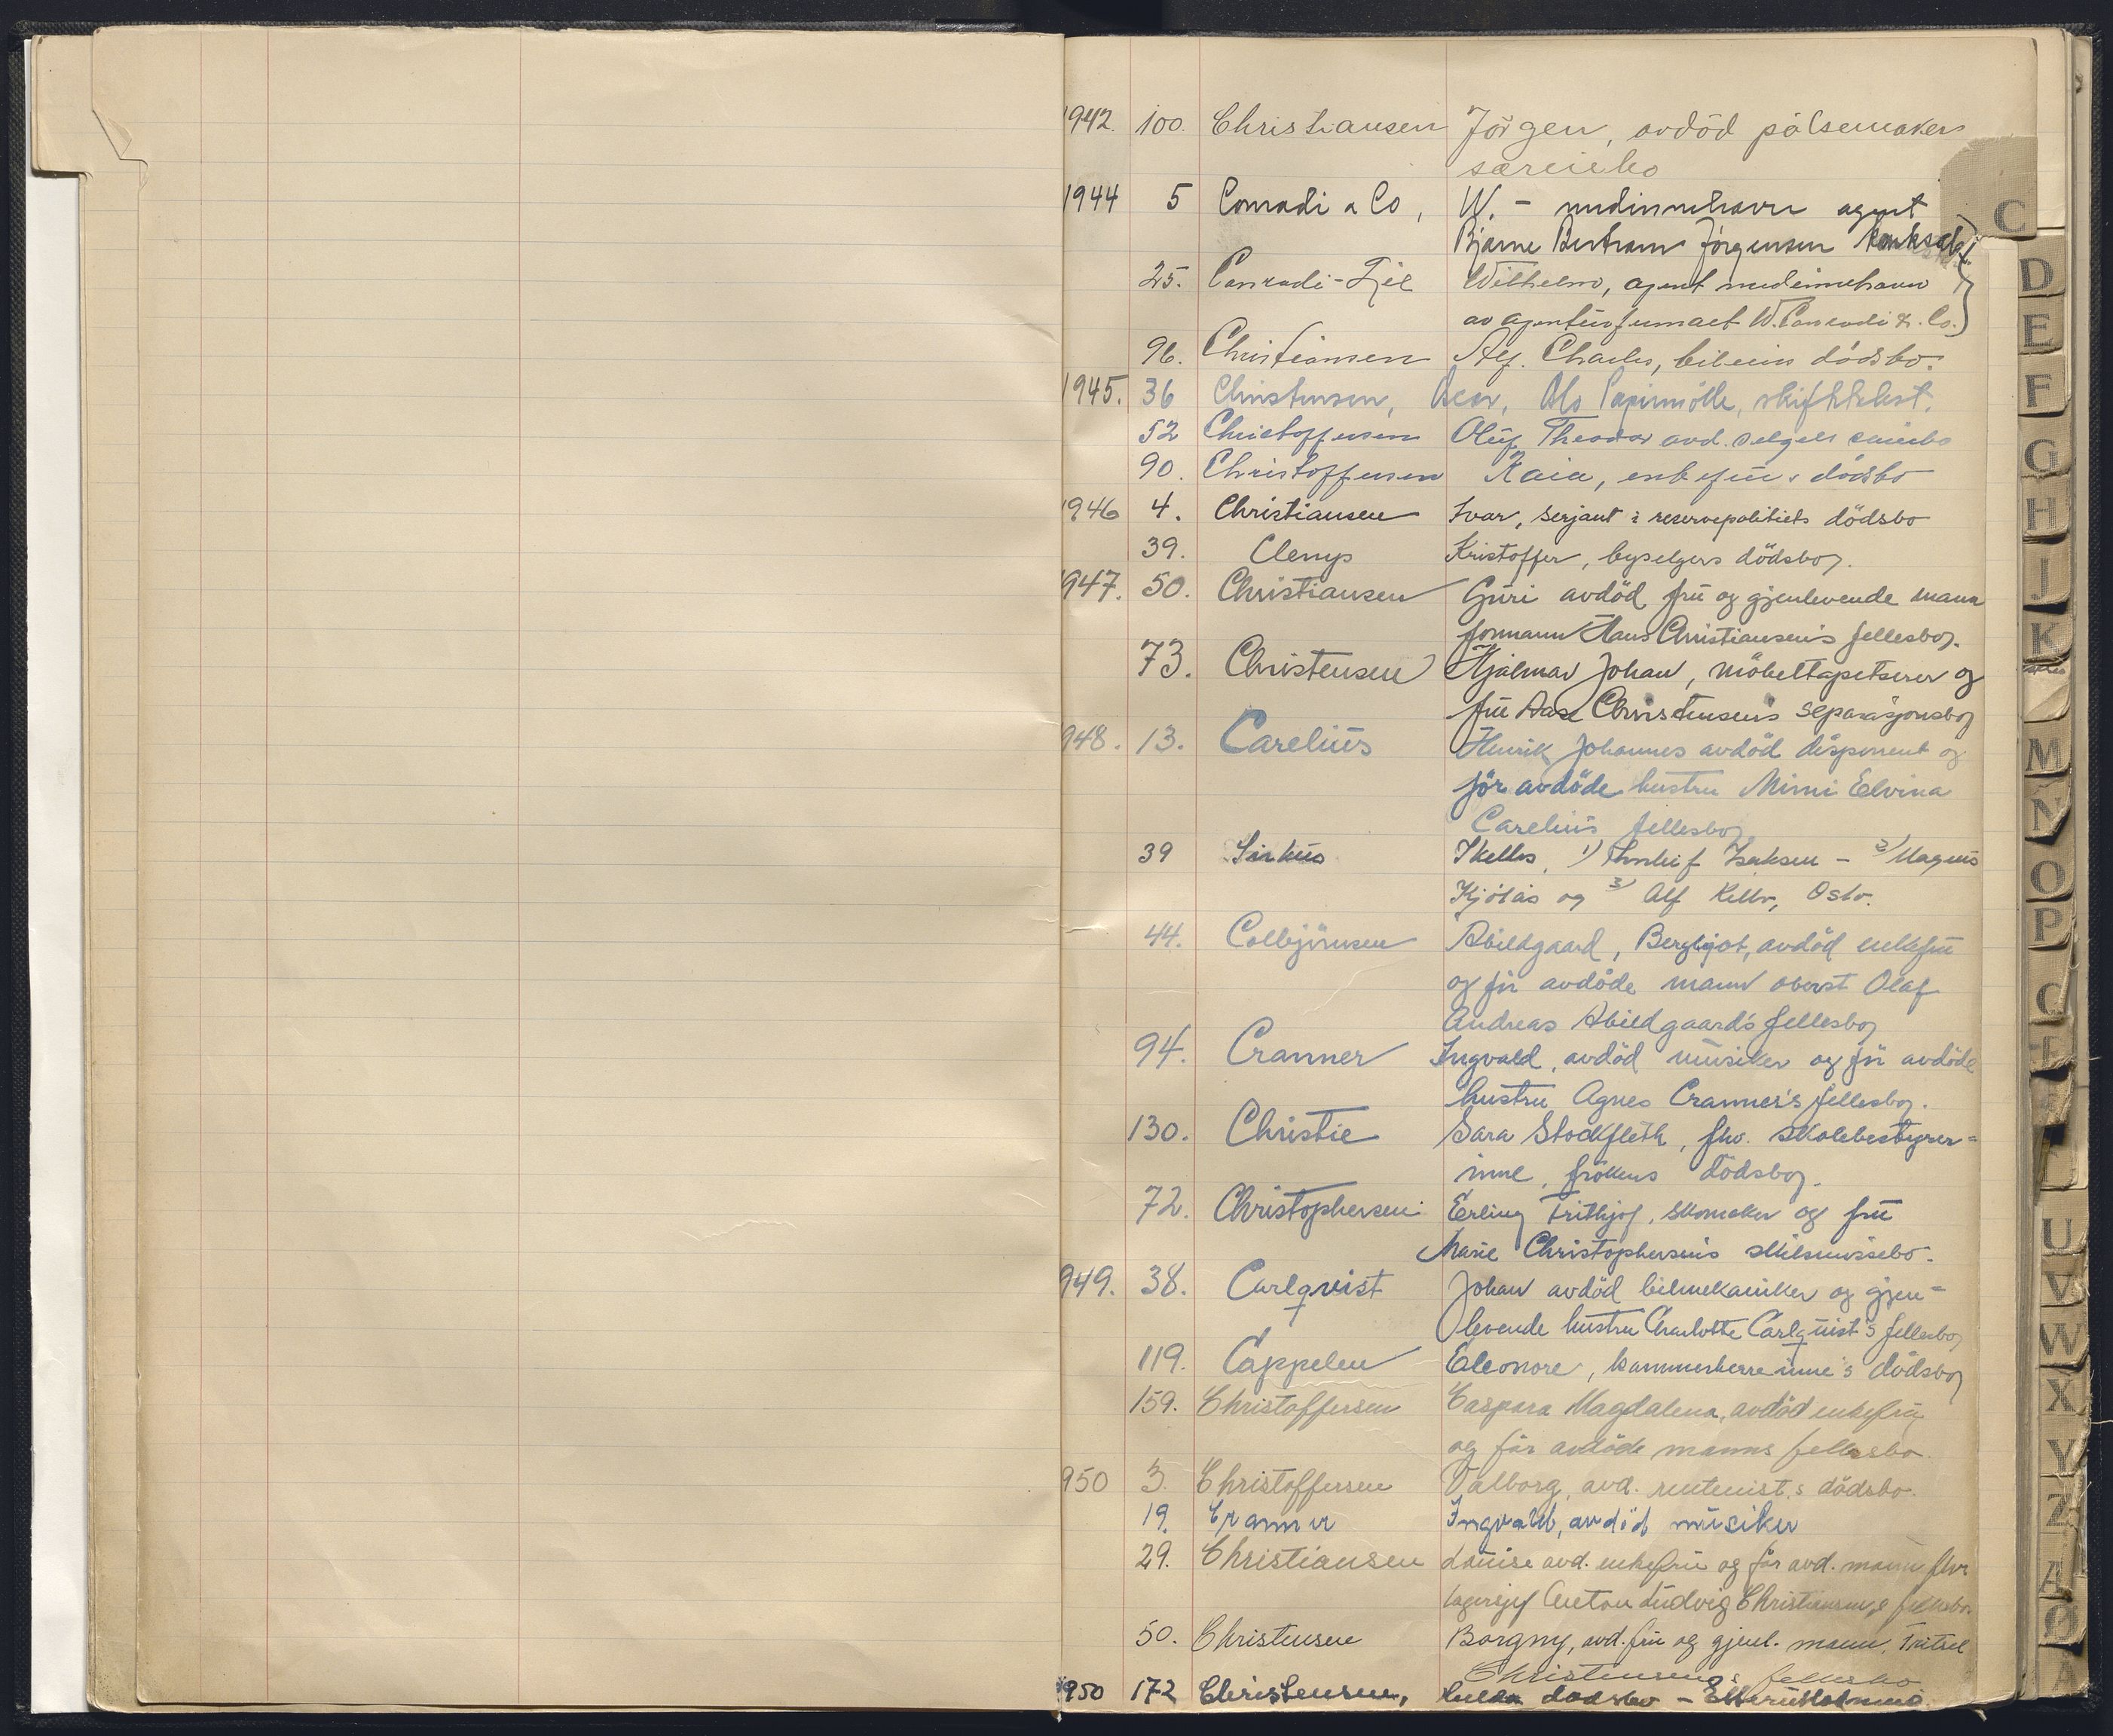 1942. 100. Christiansen Jörgen, avdöd pölsemakers
særeiebo
1944 5 Conradi & Co, W. - medinnehaver agent
Bjarne Bertram Jörgensen konkursbo
25. Conradi-Fjel Wilhelm, agent medinnehaver
av agenturfirmaet W. Conradi & Co.
96. Christiansen Alf Charles, bileiers dödsbo.
1945. 36 Christensen, Oscar, Papirmölle, skiftebest.
52 Christoffersen Oluf Theodor avd. selgers særeiebo
90. Christoffersen Kaia, enkefru s dödsbo
1946 4. Christiansen Ivar, serjant i reservepolitiets dödsbo
39. Clenys Kristoffer, byselgers dödsbo.
1947. 50. Christiansen Guri avdöd fru og gjenlevende mann
formann Hans Christiansen's fellesbo.
73. Christensen Hjalmar Johan, möbeltapetserer og
fru Aase Christensen's separasjonsbo
1948. 13. Carelius Henrik Johannes avdöd disponent og
för avdöde hustru Mimi Elvina
Carelius fellesbo
39 Sirkus 1) Isaksen - 2) Magnus
Kjölås og 3) Alf Oslo.
44. Colbjörnsen Abildgaard, Bergljot, avdöd enkefru
og för avdöde mann oberst Olaf
Andreas Abildgaard's fellesbo
94. Cranner Ingvald, avdöd musiker og för avdöde
hustru Agnes Cranner's fellesbo.
130. Christie Sara Stockfleth, fhv. skolebestyrer=
inne, frökens dödsbo.
72. Christophersen Erling Frithjof, skomaker og fru
Marie Christophersen's skilsmissebo.
1949. 38. Carlqvist Johan avdöd bilmekaniker og gjen=
levende hustru Charlotte Carlquist's fellesbo
119. Cappelen Eleonore, kammerherreinne's dödsbo
159. Christoffersen Caspara Magdalena, avdöd enkefru
og för avdöde manns fellesbo.
1950 3. Christoffersen Valborg, avd. rentenist.s dödsbo.
19. Cranner Ingvald, avdöd musiker
29. Christiansen Louise avd. enkefru og för avd. mann fhv
lagersjef Anton Ludvig Christiansen,s fellesbo.
50. Christensen Borgny, avd. fru og gjenl. mann,
Christensen,s fellesbo
1950 172 Christensen, Hulda dödsbo -
C
D
E
F
G
H
J
K
M
N
O
P
U
V
W
X
Y
Z
Ø